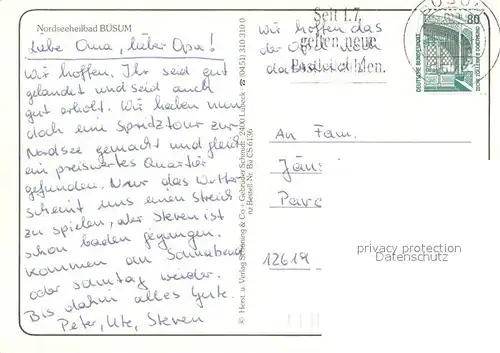 Nordseeheilbad BÜSUM
Liebe Oma, lieber Opa!
Wir hoffen, Ihr seid gut
gelandet und seid auch
gut erholt. Wir haben nun
doch eine Spridztour zur
Nordsee gemacht und gleich
ein preiswertes Quartier
gefunden. Nur das Wetter
scheint uns einen Streich
zu spielen, aber Steven ist
schon baden gegangen.
Kommen am Sonnabend
oder Sonntag wieder.
Bis dahin alles Gute.
Peter, Ute, Steven
© Herst. u. Verlag Schöning & Co + Gebrüder Schmidt · 2400 Lübeck · ☎ (0451) 310310 0
Bestell-Nr. Bü CS 6136
Wir hoffen das
der Opa
das
Seit 1.7.
gelten neue
Postleitzahlen.
BÜSUM
80
DEUTSCHE BUNDESPOST
ZECHE ZOLLERN II DORTMUND
An Fam.
Jän
Parc
12619
privacy protection
Datenschutz